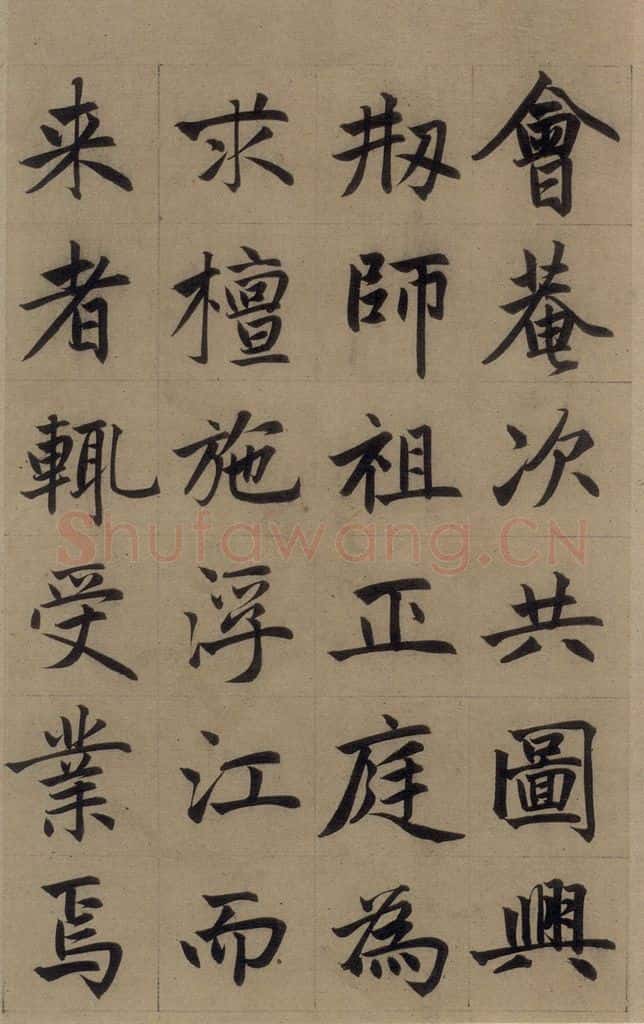 會菴次共圖興
刱師祖正庭為
求檀施浮江而
来者輒受業焉
Shufawang.CN